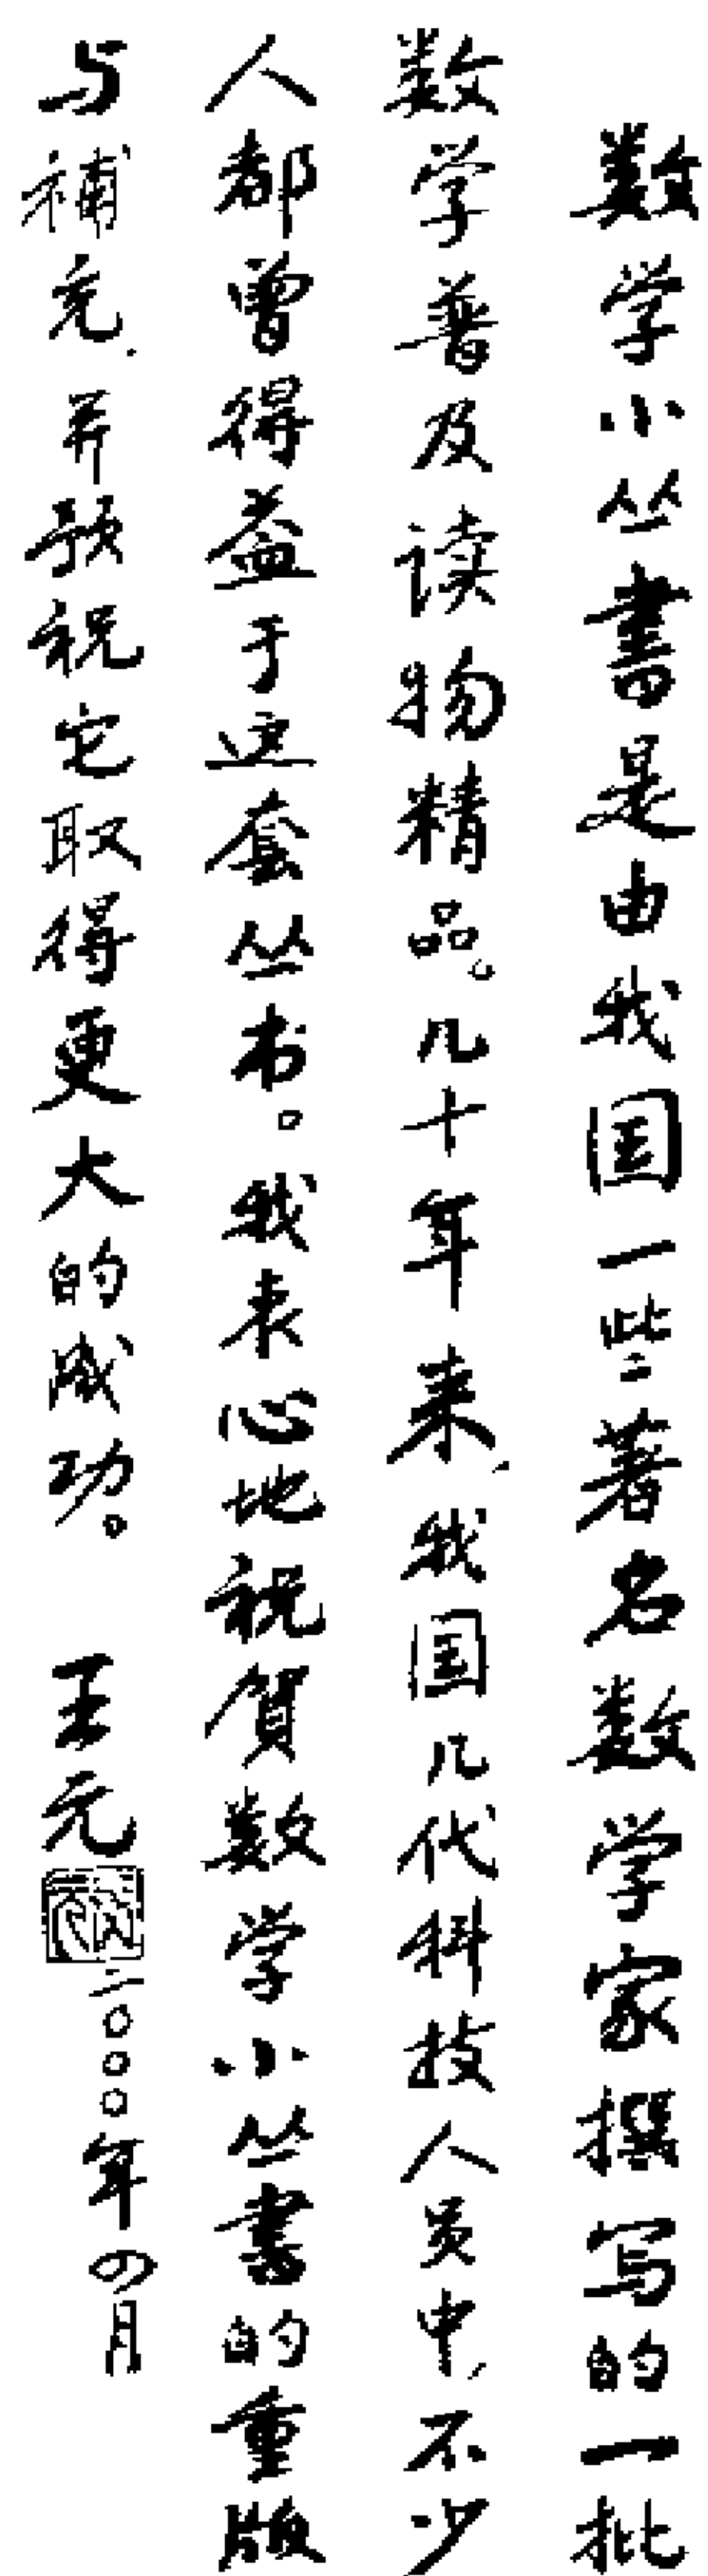 数学小丛書是由我国一些著名数学家撰写的一批
数学普及读物精品。几十年来、我国几代科技人员中、不少
人都曾得益于这套丛书。我衷心地祝賀数学小丛書的重版
与補充、并预祝它取得更大的成功。 王元 二〇〇〇年四月